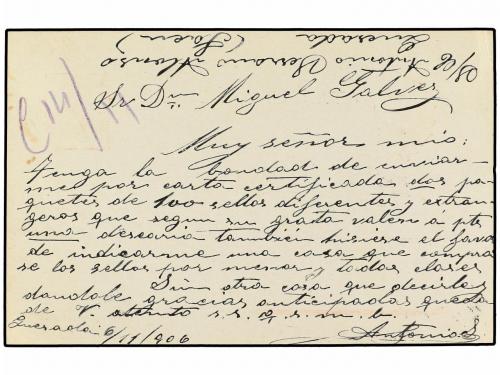 S/c Antonio Serrano Alonso
Quesada (Jaen)
Sr Dn Miguel Galvez
Muy señor mio:
Tenga la bondad de enviar-
me por carta certificada dos pa-
quetes de 100 sellos diferentes y extran-
geros que segun su grata valen a pts
una desearia tambien hisiese el favor
de indicarme una casa que compra
se los sellos por menor y todas clases
Sin otra cosa que decirles
dandole gracias anticipadas queda
de V. atento s.s. q. s. m. b.
Quesada 6/11/906
Antonio S